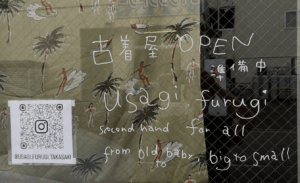 古着屋 OPEN
準備中
usagi, furugi
second hand for all
from old to baby, big to small
@USAGI.FURUGI.TAKASAKI